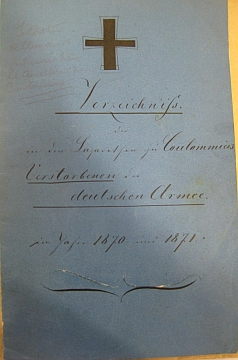 Verzeichniß.
der
in den Lazarethen zu Coulommiers
Verstorbenen der
deutschen Armee.
im Jahre 1870 und 1871.